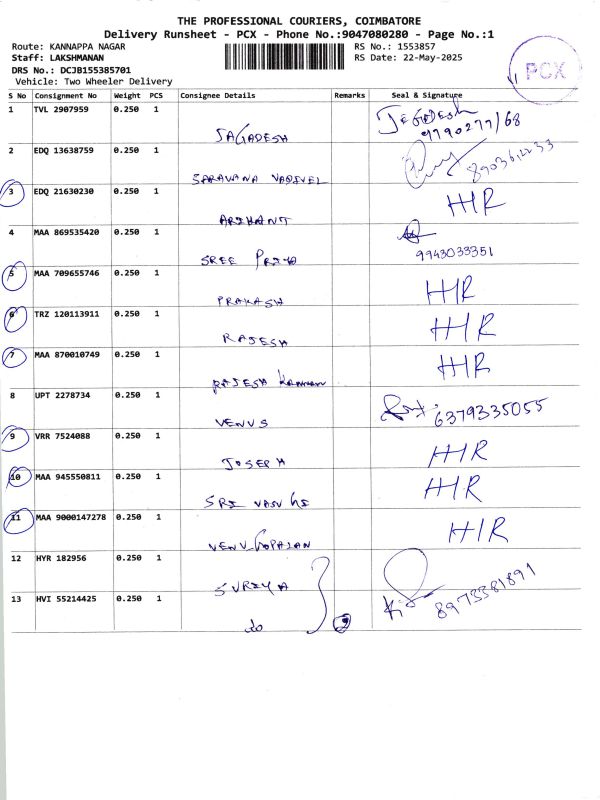 THE PROFESSIONAL COURIERS, COIMBATORE
Delivery Runsheet - PCX - Phone No.:9047080280 - Page No.:1
Route: KANNAPPA NAGAR RS No.: 1553857
Staff: LAKSHMANAN RS Date: 22-May-2025
DRS No.: DCJB155385701
Vehicle: Two Wheeler Delivery
PCX
S No Consignment No Weight PCS Consignee Details Remarks Seal & Signature
1 TVL 2907959 0.250 1 JAGADESH JEGADESH
2 EDQ 13638759 0.250 1 SARAVANA VADIVEL
3 EDQ 21630230 0.250 1 ARIHANT HIR
4 MAA 869535420 0.250 1 SREE PRIYA 9943033351
5 MAA 709655746 0.250 1 PRAKASH HIR
6 TRZ 120113911 0.250 1 RAJESH HIR
7 MAA 870010749 0.250 1 RAJESH KANNAN HIR
8 UPT 2278734 0.250 1 VENUS 6379335055
9 VRR 7524088 0.250 1 JOSEPH HIR
10 MAA 945550811 0.250 1 SRI HIR
11 MAA 9000147278 0.250 1 VENUGOPALAN HIR
12 HYR 182956 0.250 1 SURIYA
13 HVI 55214425 0.250 1 do 2 8973381891